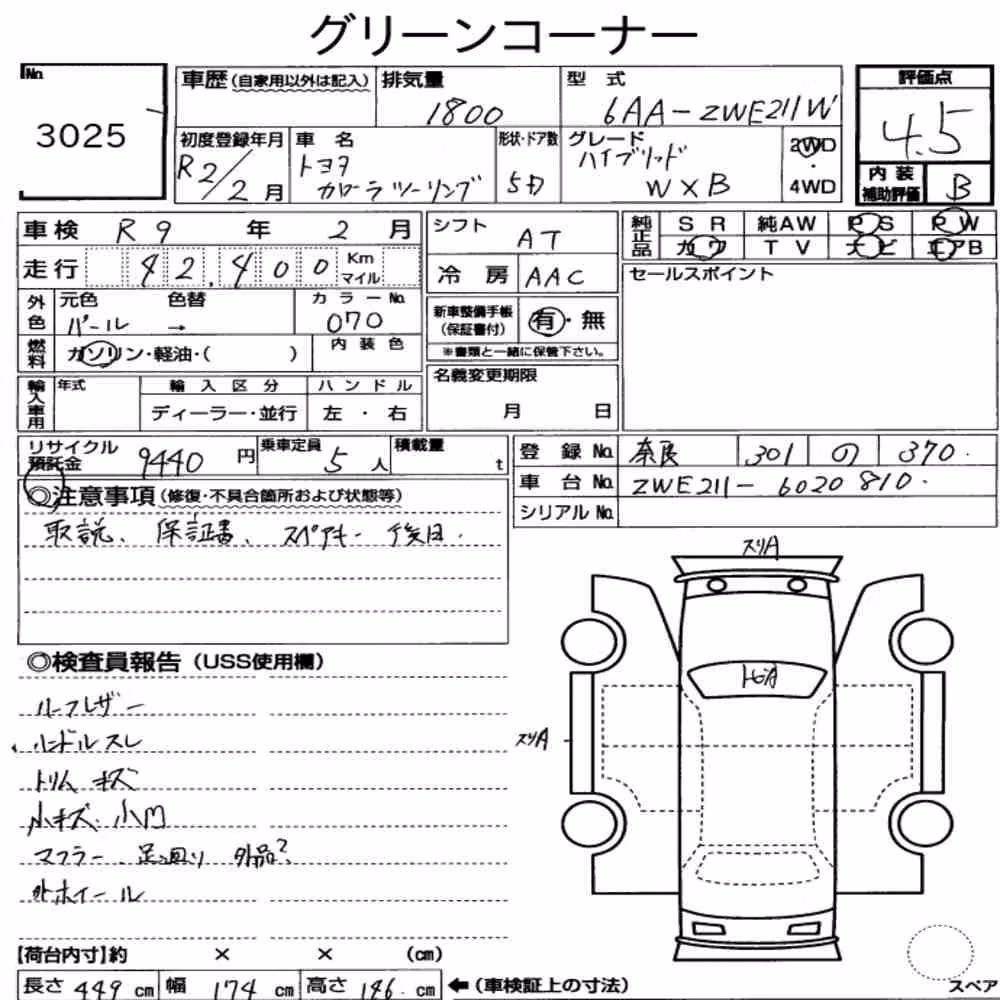 グリーンコーナー
No.
3025
車歴(自家用以外は記入)
排気量
1800
型 式
6AA-ZWE211W
評価点
4.5
内 装
補助評価
B
初度登録年月
R2/2月
車 名
トヨタ
カローラツーリング
形状・ドア数
5D
グレード
ハイブリッド
W×B
2WD
・
4WD
車検 R9 年 2 月
走行 42,400 Km
マイル
外色
元色 色替
パール →
カラーNo.
070
燃料
ガソリン・軽油・( )
内 装 色
輸入車用
年式
輸 入 区 分
ハ ン ド ル
ディーラー・並行
左 ・ 右
シフト AT
冷 房 AAC
新車整備手帳
(保証書付)
有・無
※書類と一緒に保管下さい。
名義変更期限
月 日
純正品
S R 純AW P S P W
カ ワ T V ナ ビ エアB
セールスポイント
リサイクル
預託金
9440 円
乗車定員
5 人
積載量
t
登 録 No. 奈良 301 の 370.
車 台 No. ZWE211-6020810.
シリアル No.
◎注意事項(修復・不具合箇所および状態等)
取説、保証書、スペアキー 後日.
◎検査員報告(USS使用欄)
ルーフレザー
ハンドルスレ
トリム キズ
小キズ、小凹
マフラー、足廻り 外品?
外ホイール
スリA
トビA
スリA
【荷台内寸】約 × × (cm)
長さ 449 cm 幅 174 cm 高さ 146. cm ←(車検証上の寸法)
スペア